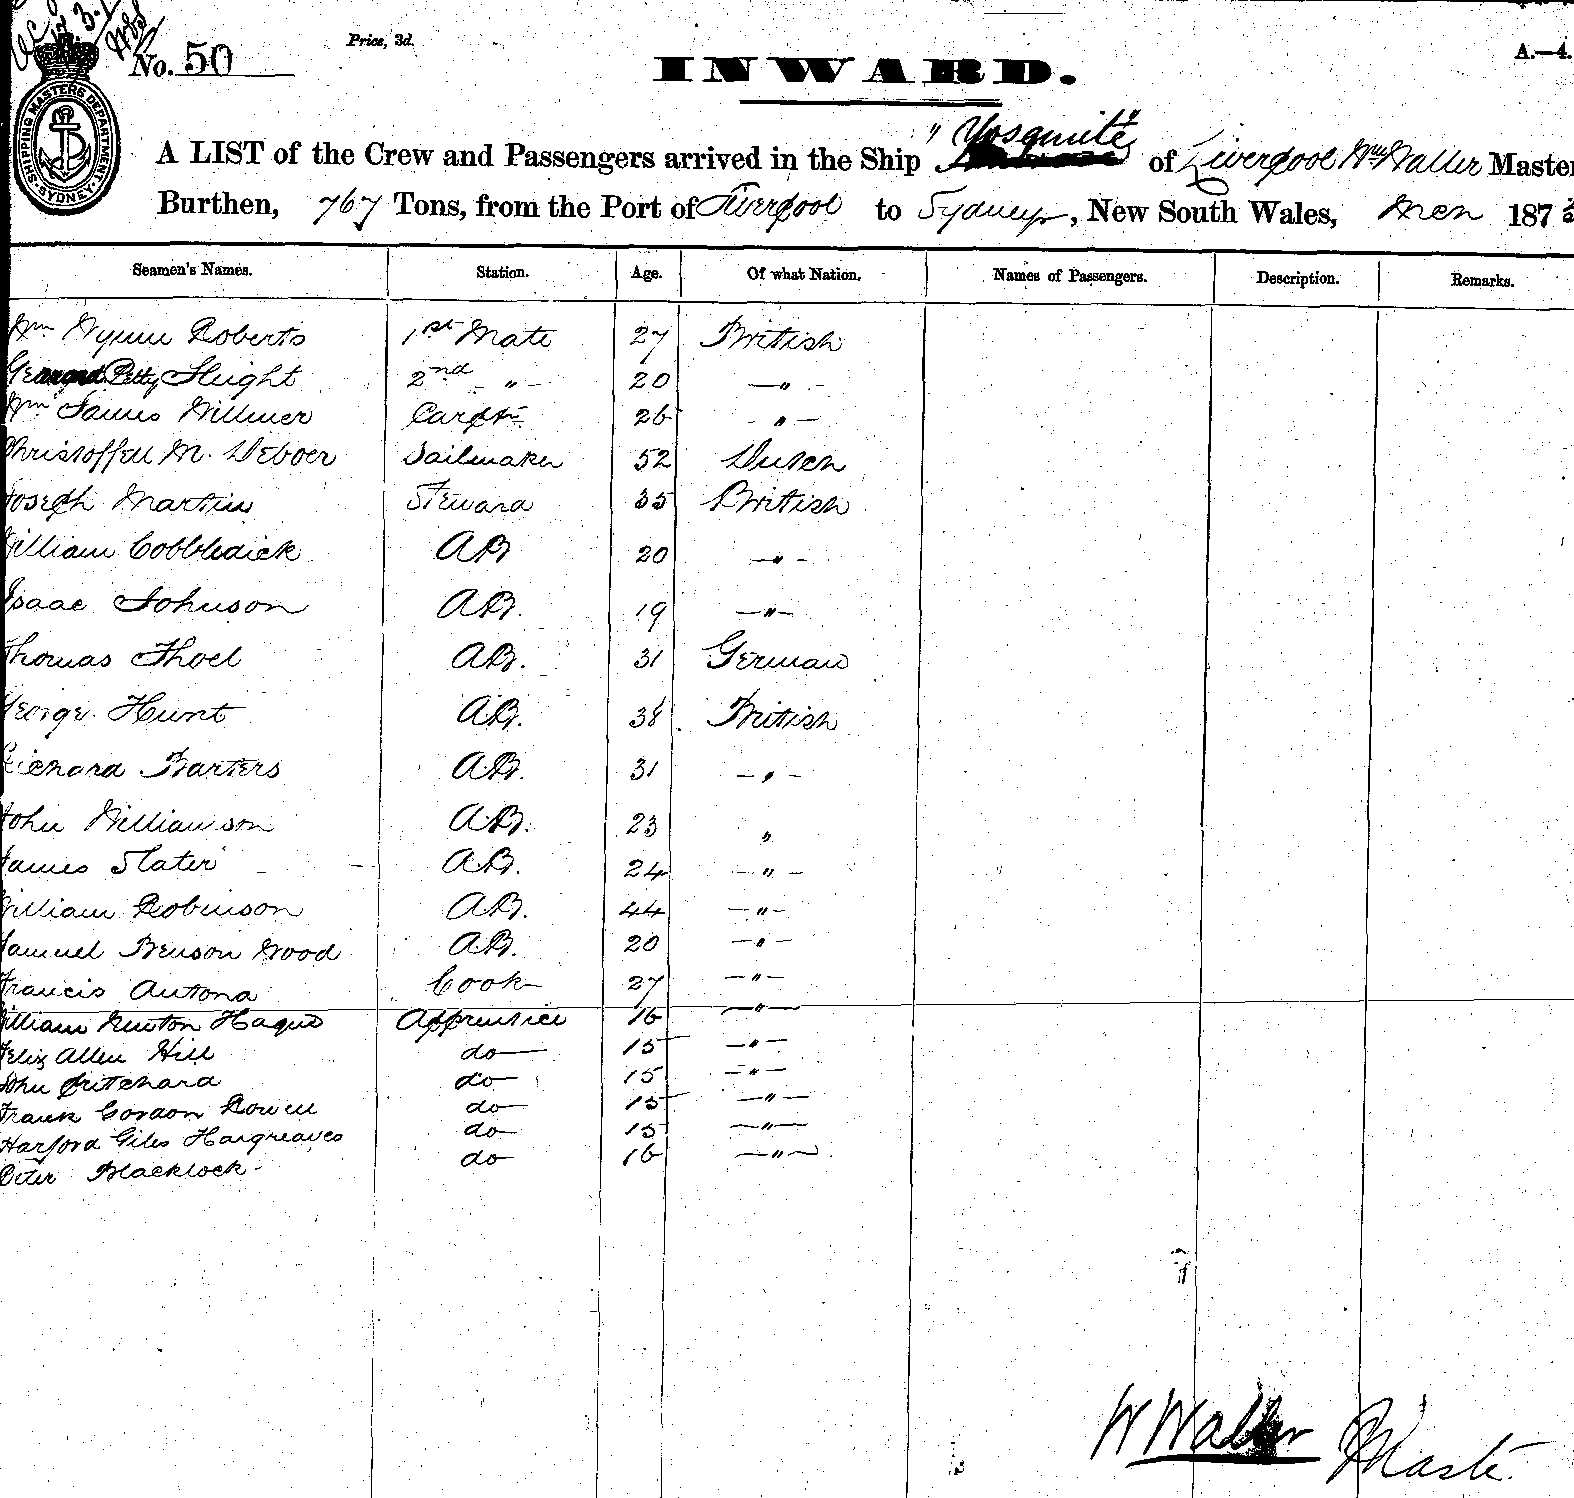 No. 50
Price, 3d.
A.—4.
INWARD.
SHIPPING MASTERS DEPARTMENT SYDNEY
A LIST of the Crew and Passengers arrived in the Ship "Yosemite" of Liverpool Wm Waller Master
Burthen, 767 Tons, from the Port of Liverpool to Sydney, New South Wales, 187
Seamen's Names. Station. Age. Of what Nation. Names of Passengers. Description. Remarks.
Wm Wynne Roberts 1st Mate 27 British
Petty Slight 2nd —"— 20 —"—
Wm James Willmer Carptr 26 "—
Christoffell M. Deboer Sailmaker 52 Dutch
Joseph Martin Steward 35 British
William Cobbledick AB 20 —"—
Isaac Johnson AB. 19 —"—
Thomas Thoel AB. 31 German
George Hunt AB. 38 British
Richard Barters AB. 31 —"—
John Williamson AB. 23 "
James Slater AB. 24 —"—
William Robinson AB. 44 —"—
Samuel Benson Wood AB. 20 —"—
Francis Antona Cook 27 —"—
William Newton Hague Apprentice 16 —"—
Felix Allen Hill do 15 —"—
John Pritchard do 15 —"—
Frank Gordon Rowell do 15 —"—
Harford Giles Hargreaves do 15 —"—
Peter Blacklock do 16 —"—
W Waller Master